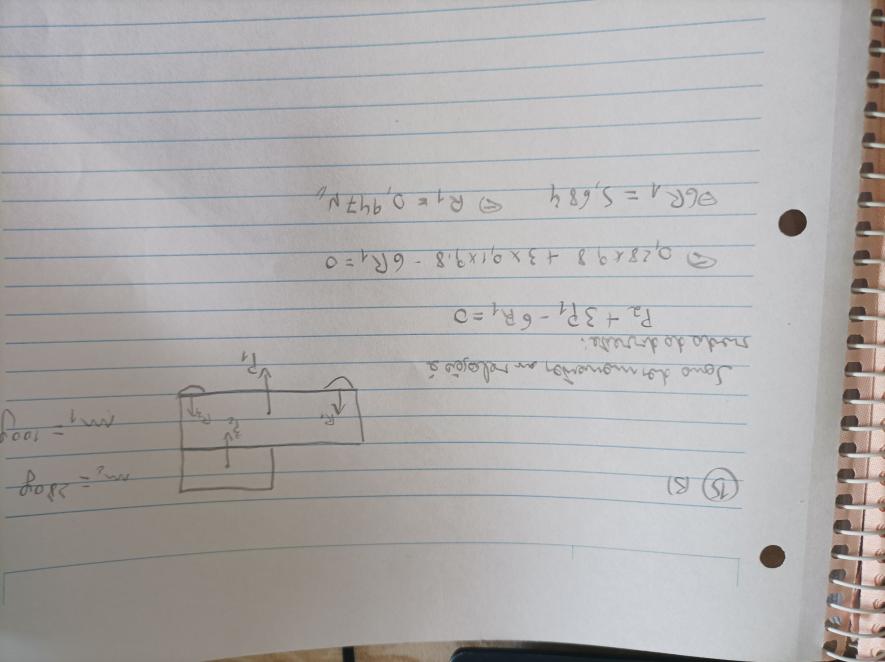 15 B)
m₂ = 280g
m₁ = 100g
R₁ P₂ R₂
P₁
Soma dos momentos em relação à
roda da direita:
P₂ + 3P₁ - 6R₁ = 0
⇔ 0,28 x 9,8 + 3 x 0,1 x 9.8 - 6R₁ = 0
⇔ 6R₁ = 5,684 ⇔ R₁ = 0,947 N,,